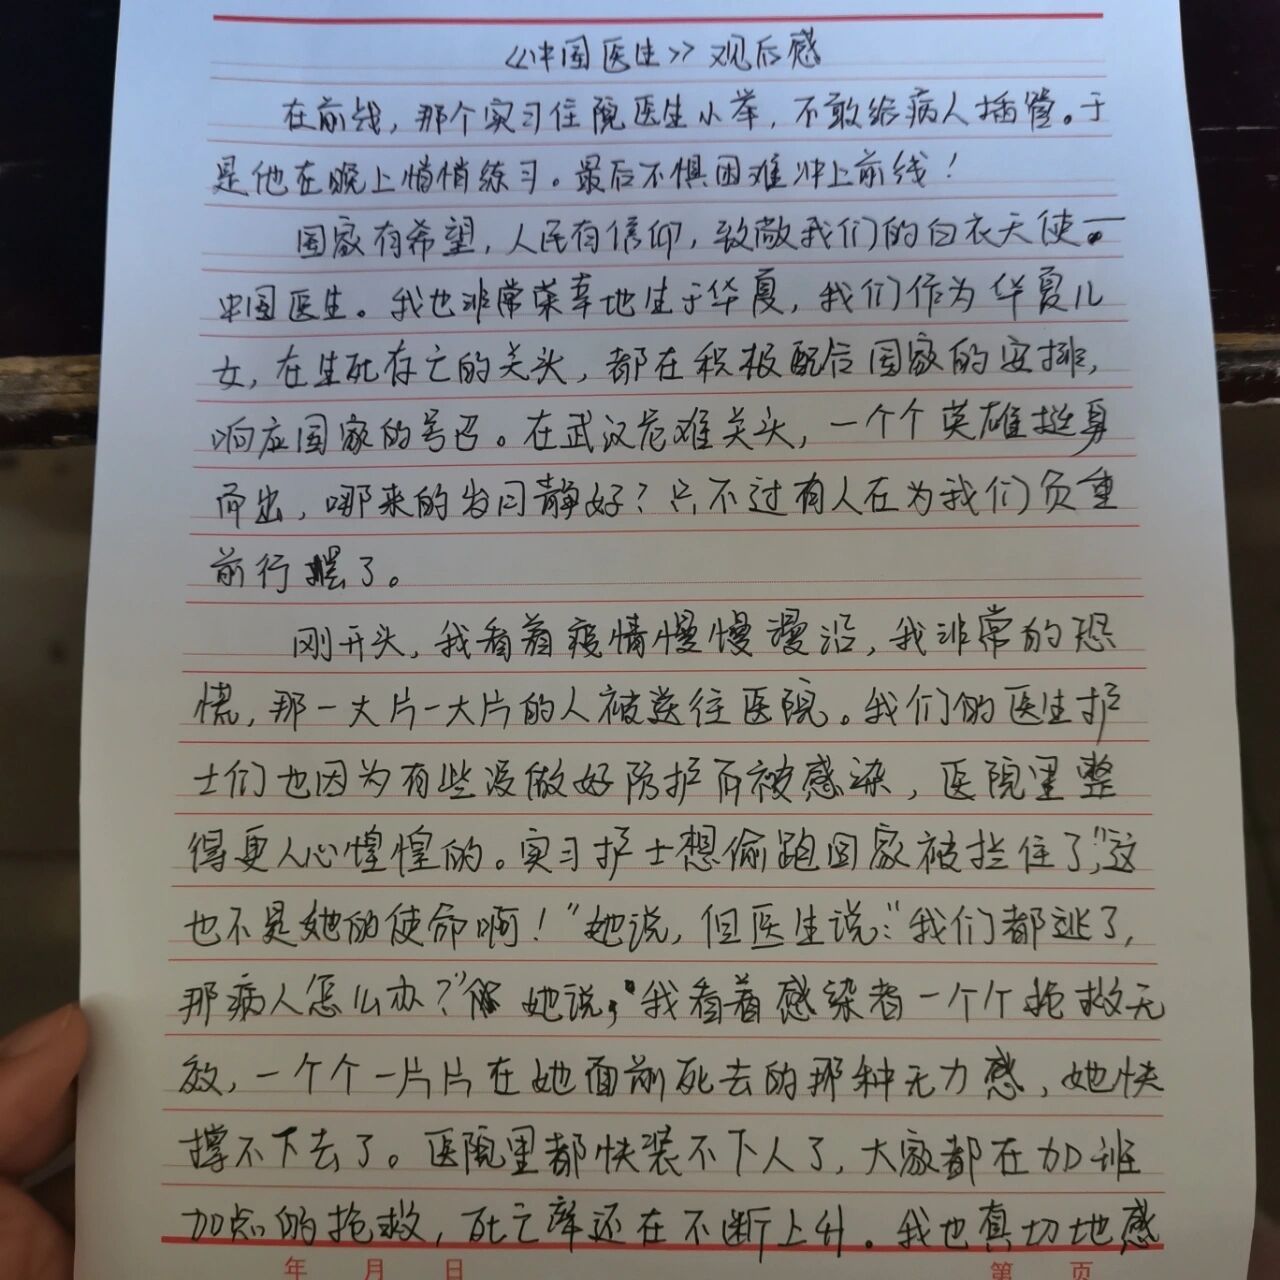 《中国医生》观后感
在前线，那个实习住院医生小举，不敢给病人插管。于
是他在晚上悄悄练习。最后不惧困难冲上前线！
国家有希望，人民有信仰，致敬我们的白衣天使一
中国医生。我也非常荣幸地生于华夏，我们作为华夏儿
女，在生死存亡的关头，都在积极配合国家的安排，
响应国家的号召。在武汉危难关头，一个个英雄挺身
而出，哪来的岁月静好？只不过有人在为我们负重
前行罢了。
刚开头，我看着疫情慢慢漫沿，我非常的恐
慌，那一大片一大片的人被送往医院。我们的医生护
士们也因为有些没做好防护而被感染，医院里整
得更人心惶惶的。实习护士想偷跑回家被拦住了，“这
也不是她的使命啊！”她说，但医生说：“我们都逃了，
那病人怎么办？”她说，“我看着感染者一个个抢救无
效，一个个一片片在她面前死去的那种无力感，她快
撑不下去了。医院里都快装不下人了，大家都在加班
加点的抢救，死亡率还在不断上升。我也真切地感
年 月 日
第 页